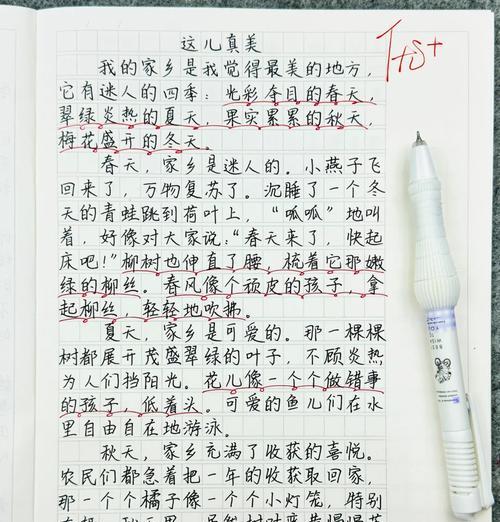 这儿真美
我的家乡是我觉得最美的地方，
它有迷人的四季：光彩夺目的春天，
翠绿炎热的夏天，果实累累的秋天，
梅花盛开的冬天。
春天，家乡是迷人的。小燕子飞
回来了，万物复苏了。沉睡了一个冬
天的青蛙跳到荷叶上，“呱呱”地叫
着，好像对大家说：“春天来了，快起
床吧！”柳树也伸直了腰，梳着它那嫩
绿的柳丝。春风像个顽皮的孩子，拿
起柳丝，轻轻地吹拂。
夏天，家乡是可爱的。那一棵棵
树都展开茂盛翠绿的叶子，不顾炎热
为人们挡阳光。花儿像一个个做错事
的孩子，低着头。可爱的鱼儿们在水
里自由自在地游泳。
秋天，家乡充满了收获的喜悦。
农民们都急着把一年的收获取回家，
那一个个橘子像一个个小灯笼，特别